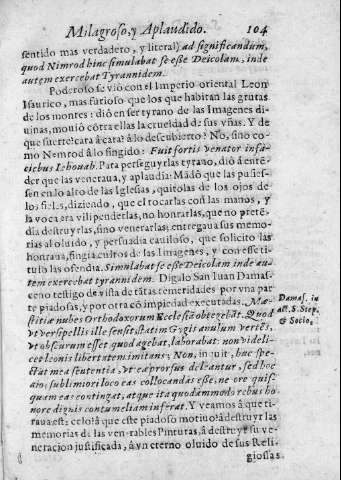 Milagroso, y Aplaudido. 104
sentido mas verdadero, y literal) ad significandum,
quod Nimrod hinc simulabat se esse Deicolam, inde
autem exercebat Tyrannidem.
Poderoso se viò con el Imperio oriental Leon
Isaurico, mas furioso que los que habitan las grutas
de los montes: diò en ser tyrano de las Imagenes di-
uinas, mouiò cõtra ellas la crueldad de sus vñas. Y de
que suerte? cara à cara? à lo descubierto? No, sino co-
mo Nemrod à lo fingido: Fuit fortis venator in fa-
ciebus Iehouah. Para perseguyrlas tyrano, diò à entẽ-
der que las veneraua, y aplaudia: Mãdò que las pusies-
sen en lo alto de las Iglesias, quitolas de los ojos de
los fieles, diziendo, que el tocarlas con las manos, y
la voca era vilipenderlas, no honrarlas, que no pretẽ-
dia destruyrlas, sino venerarlas; entregaua sus memo-
rias al oluido, y persuadia cauiloso, que solicito las
honraua, fingia cultos de las Imagenes, y con esse ti-
tulo las ofendia. Simulabat se esse Deicolam inde au-
tem exercebat tyrannidem. Digalo San Iuan Damas-
ceno testigo de vista de tãtas temeridades por vna par-
te piadosas, y por otra cõ impiedad executadas. Mæ-
stitiæ nubes Orthodoxorum Ecclesiã obtegebat. Quod
vt verspellis ille sensit, statim Gygis anulum vertẽs,
vt obscurum esset quod agebat, laborabat: non videli-
cet leonis libertatem imitans; Non, inquit, huc spe-
ctat mea sententia, vt eæ prorsus deleantur, sed hoc
aio, sublimiori loco eas collocandas esse, ne ore quis-
quam eas contingat, atque ita quodammodo rebus ho
nore dignis contumeliam inferat. Y veamos à que ti-
raua este celo? à que este piadoso motiuo? à destruyr las
memorias de las venerables Pinturas, à destruyr su ve-
neracion justificada, à vn eterno oluido de sus Reli-
giosas
Damas. in
act. S. Step.
& Socio.